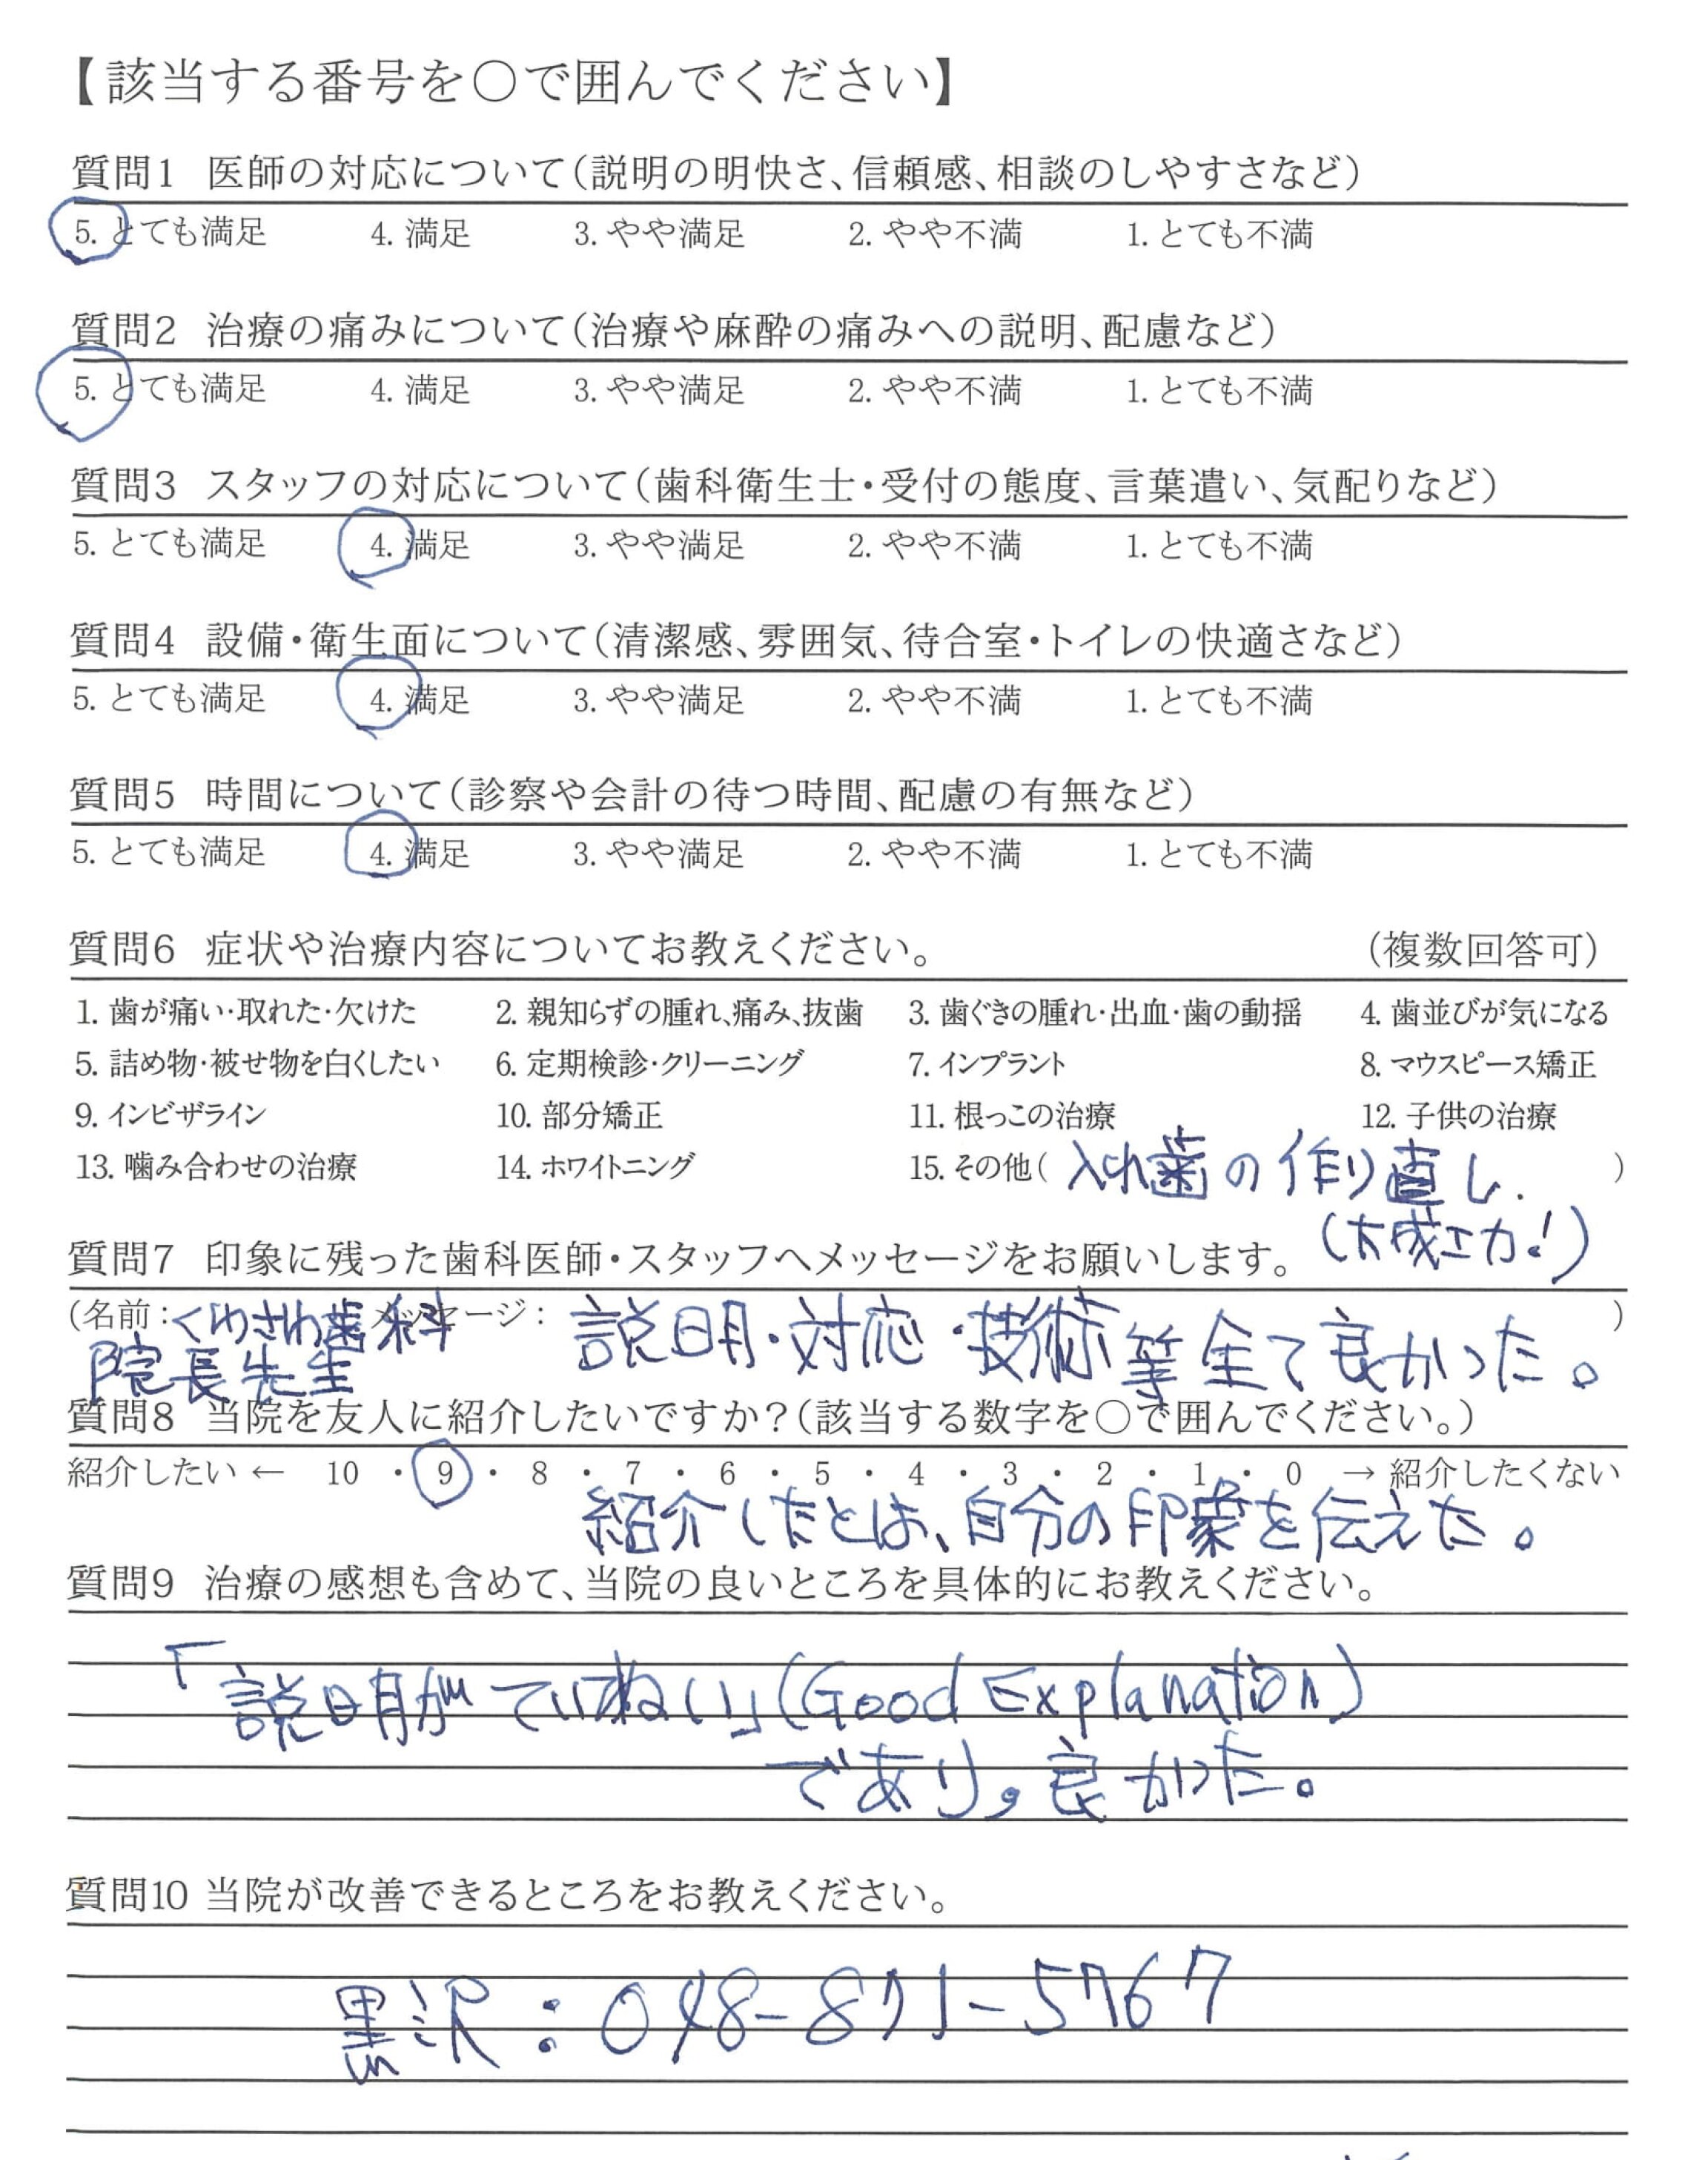 【該当する番号を○で囲んでください】
質問1 医師の対応について(説明の明快さ、信頼感、相談のしやすさなど)
5. とても満足 4. 満足 3. やや満足 2. やや不満 1. とても不満
質問2 治療の痛みについて(治療や麻酔の痛みへの説明、配慮など)
5. とても満足 4. 満足 3. やや満足 2. やや不満 1. とても不満
質問3 スタッフの対応について(歯科衛生士・受付の態度、言葉遣い、気配りなど)
5. とても満足 4. 満足 3. やや満足 2. やや不満 1. とても不満
質問4 設備・衛生面について(清潔感、雰囲気、待合室・トイレの快適さなど)
5. とても満足 4. 満足 3. やや満足 2. やや不満 1. とても不満
質問5 時間について(診察や会計の待つ時間、配慮の有無など)
5. とても満足 4. 満足 3. やや満足 2. やや不満 1. とても不満
質問6 症状や治療内容についてお教えください。 (複数回答可)
1. 歯が痛い・取れた・欠けた 2. 親知らずの腫れ、痛み、抜歯 3. 歯ぐきの腫れ・出血・歯の動揺 4. 歯並びが気になる
5. 詰め物・被せ物を白くしたい 6. 定期検診・クリーニング 7. インプラント 8. マウスピース矯正
9. インビザライン 10. 部分矯正 11. 根っこの治療 12. 子供の治療
13. 噛み合わせの治療 14. ホワイトニング 15. その他( 入れ歯の作り直し. )
(大成工力!)
質問7 印象に残った歯科医師・スタッフへメッセージをお願いします。
(名前:くわさわ歯科 メッセージ: 説明・対応・技術等全て良かった。 )
院長先生
質問8 当院を友人に紹介したいですか?(該当する数字を○で囲んでください。)
紹介したい ← 10 ・ 9 ・ 8 ・ 7 ・ 6 ・ 5 ・ 4 ・ 3 ・ 2 ・ 1 ・ 0 → 紹介したくない
紹介したとは、自分の印象を伝えた。
質問9 治療の感想も含めて、当院の良いところを具体的にお教えください。
「説明がていねい」(Good Explanation)
であり。良かった。
質問10 当院が改善できるところをお教えください。
黒沢:048-871-5767